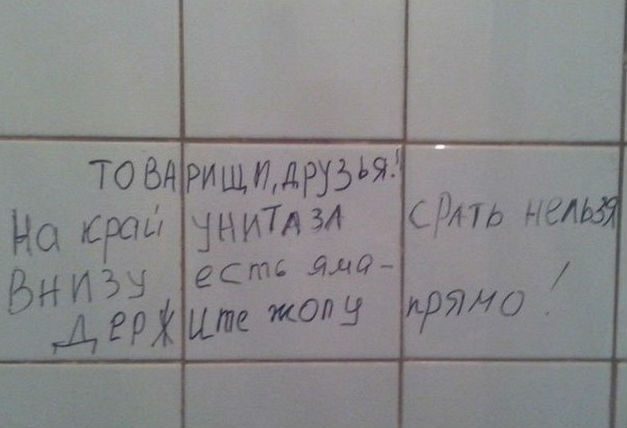 ТОВАРИЩИ, ДРУЗЬЯ!
На край унитаза срать нельзя
Внизу есть яма-
Держите жопу прямо!